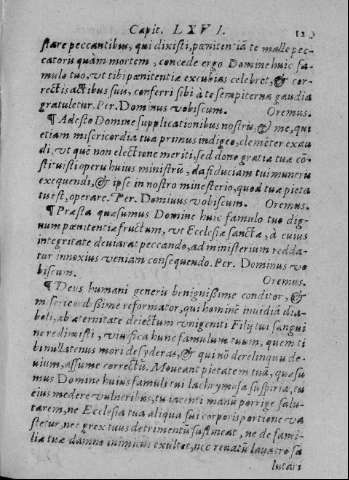 Capit. LXVI.
stare peccantibus, qui dixisti, pœnitentiã te malle pec-
catorũ quàm mortem, concede ergo Domine huic fa-
mulo tuo, vt tibi pœnitentiæ excubias celebret, & cor-
rectis actibus suis, conferri sibi à te sempiterna gaudia
gratuletur. Per. Dominus vobiscum. Oremus.
¶ Adesto Domine supplicationibus nostris, & me, qui
etiam misericordia tua primus indigeo, clemẽter exau
di, vt quẽ non electione meriti, sed dono gratiæ tuæ cõ-
stituisti operis huius ministrũ, da fiduciam tui muneris
exequendi, & ipse in nostro ministerio, quod tuæ pieta
tis est, operare. Per. Dominus vobiscum. Oremus.
¶ Præsta quæsumus Domine huic famulo tuo dig-
num pœnitentiæ fructum, vt Ecclesiæ sanctæ, à cuius
integritate deuiarat peccando, ad ministerium redda-
tur innoxius veniam consequendo. Per. Dominus vo
biscum. Oremus.
¶ Deus humani generis benignissime conditor, &
misericordissime reformator, qui hominẽ inuidiã dia-
boli, ab æternitate deiectum vnigeniti Filij tui sangui
ne redimisti, viuifica hunc famulum tuum, quem ti
bi nullatenus mori desyderas, & qui nõ derelinquis de-
uium, assume correctũ. Moueant pietatem tuã, quæsu
mus Domine huius famuli tui lachrymosa suspiria, tu
eius medere vulneribus, tu iacenti manũ porrige salu-
tarem, ne Ecclesia tua aliqua sui corporis portione va
stetur, nec grex tuus detrimentũ sustineat, ne de fami-
liæ tuæ damno inimicus exultet, nec renatũ lauacro sa
lutari